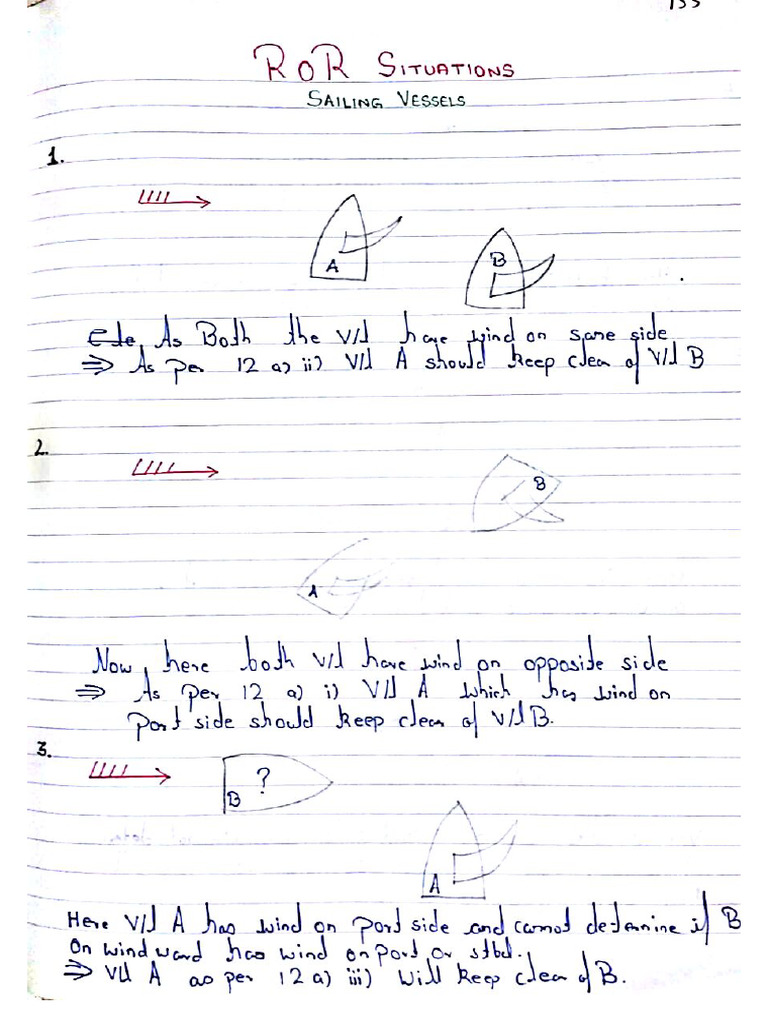 133
RoR SITUATIONS
SAILING VESSELS
1.
A
B
As Both the V/l have wind on same side
⇒ As per 12 a) ii) V/l A should keep clear of V/l B
2.
B
A
Now, here both v/l have wind on opposite side
⇒ As per 12 a) i) V/l A which has wind on
port side should keep clear of V/l B.
3.
B ?
A
Here V/l A has wind on port side and cannot determine if B
on windward has wind on port or stbd.
⇒ V/l A as per 12 a) iii) will keep clear of B.